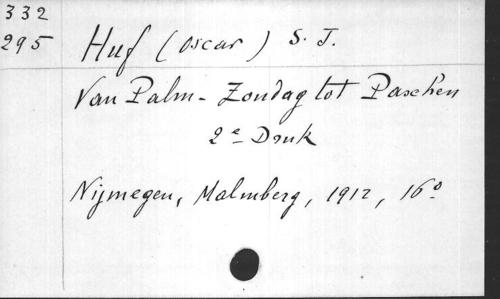 332
295
Huf (Oscar) S. J.
Van Palm-Zondag tot Paschen
2e Druk
Nijmegen, Malmberg, 1912, 16o